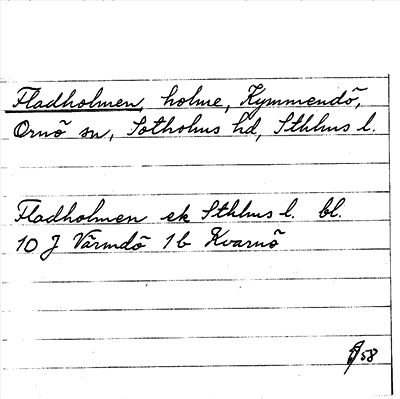 Fladholmen, holme, Kymmendö,
Ornö sn, Sotholms hd, Sthlms l.
Fladholmen ek Sthlms l. bl.
10 J Värmdö 1b Kvarnö
58